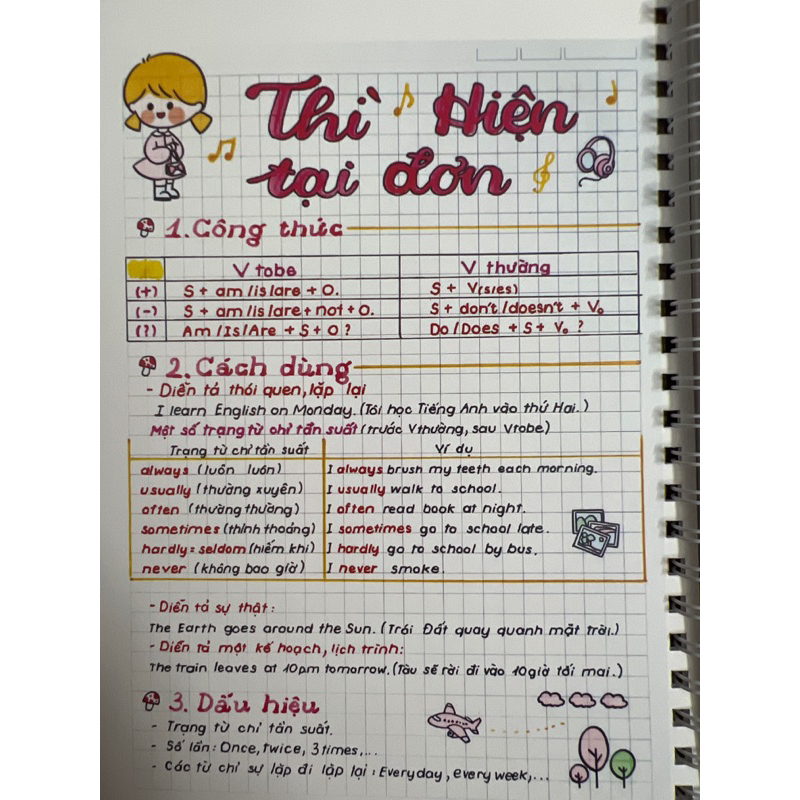 Thì Hiện
tại đơn
1. Công thức
V tobe V thường
(+) S + am/is/are + O. S + V(s/es)
(-) S + am/is/are + not + O. S + don't/doesn't + V₀
(?) Am/Is/Are + S + O? Do/Does + S + V₀?
2. Cách dùng
- Diễn tả thói quen, lặp lại
I learn English on Monday. (Tôi học Tiếng Anh vào thứ Hai.)
Một số trạng từ chỉ tần suất (trước Vthường, sau Vtobe)
Trạng từ chỉ tần suất Ví dụ
always (luôn luôn) I always brush my teeth each morning.
usually (thường xuyên) I usually walk to school.
often (thường thường) I often read book at night.
sometimes (thỉnh thoảng) I sometimes go to school late.
hardly = seldom (hiếm khi) I hardly go to school by bus.
never (không bao giờ) I never smoke.
- Diễn tả sự thật:
The Earth goes around the Sun. (Trái Đất quay quanh mặt trời.)
- Diễn tả một kế hoạch, lịch trình:
The train leaves at 10pm tomorrow. (Tàu sẽ rời đi vào 10giờ tối mai.)
3. Dấu hiệu
- Trạng từ chỉ tần suất.
- Số lần: Once, twice, 3 times,...
- Các từ chỉ sự lặp đi lặp lại: Everyday, every week,...